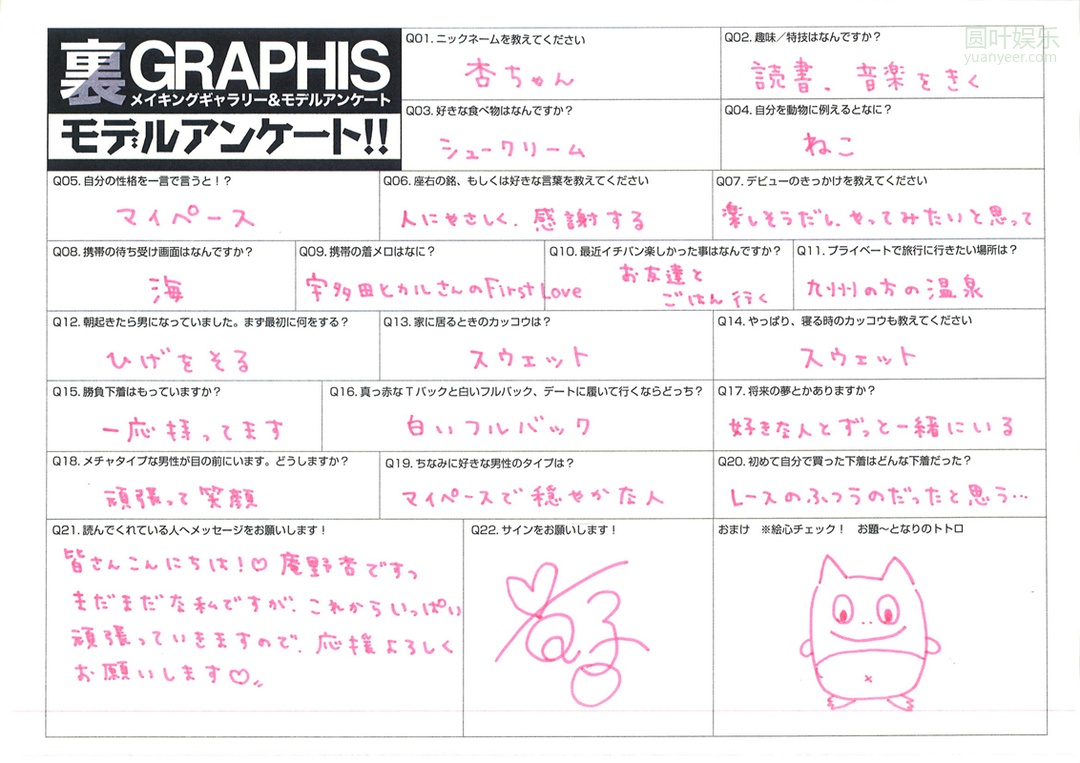 裏GRAPHIS
メイキングギャラリー&モデルアンケート
モデルアンケート!!
圆叶娱乐
yuanyeer.com
Q01. ニックネームを教えてください
杏ちゃん
Q02. 趣味／特技はなんですか？
読書、音楽をきく
Q03. 好きな食べ物はなんですか？
シュークリーム
Q04. 自分を動物に例えるとなに？
ねこ
Q05. 自分の性格を一言で言うと！？
マイペース
Q06. 座右の銘、もしくは好きな言葉を教えてください
人にやさしく、感謝する
Q07. デビューのきっかけを教えてください
楽しそうだし、やってみたいと思って
Q08. 携帯の待ち受け画面はなんですか？
海
Q09. 携帯の着メロはなに？
宇多田ヒカルさんのFirst Love
Q10. 最近イチバン楽しかった事はなんですか？
お友達と
ごはん行く
Q11. プライベートで旅行に行きたい場所は？
九州の方の温泉
Q12. 朝起きたら男になっていました。まず最初に何をする？
ひげをそる
Q13. 家に居るときのカッコウは？
スウェット
Q14. やっぱり、寝る時のカッコウも教えてください
スウェット
Q15. 勝負下着はもっていますか？
一応持ってます
Q16. 真っ赤なTバックと白いフルバック、デートに履いて行くならどっち？
白いフルバック
Q17. 将来の夢とかありますか？
好きな人とずっと一緒にいる
Q18. メチャタイプな男性が目の前にいます。どうしますか？
頑張って笑顔
Q19. ちなみに好きな男性のタイプは？
マイペースで穏やかな人
Q20. 初めて自分で買った下着はどんな下着だった？
レースのふつうのだったと思う…
Q21. 読んでくれている人へメッセージをお願いします！
皆さんこんにちは！♡ 庵野杏ですっ
まだまだな私ですが、これからいっぱい
頑張っていきますので、応援よろしく
お願いします♡
Q22. サインをお願いします！
おまけ ※絵心チェック！ お題〜となりのトトロ